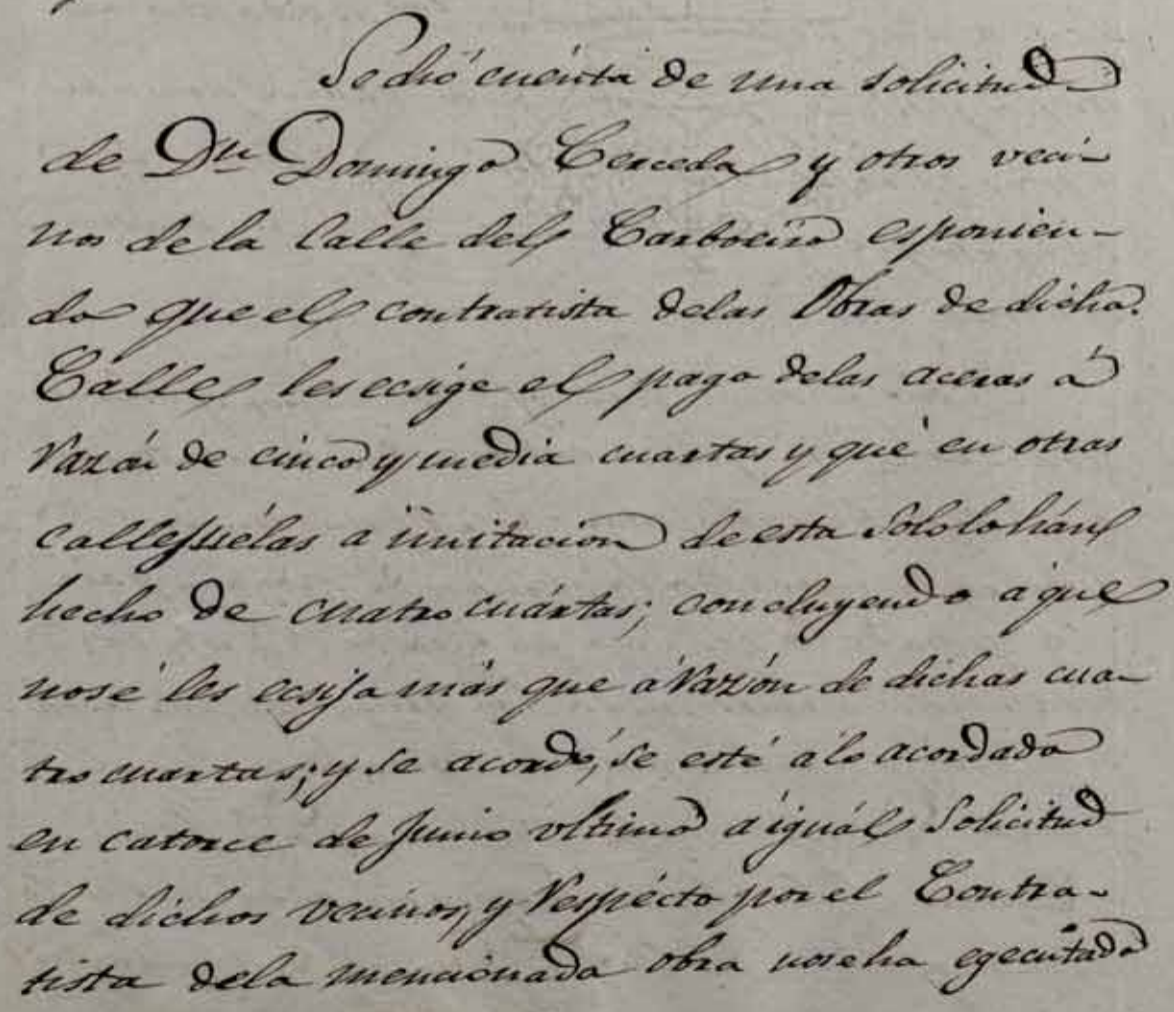 Se dió cuenta de una solicitud
de Dn Domingo Cerceda y otros veci-
nos de la Calle del Carboeiro esponien-
do que el contratista delas Obras de dicha
Calle les ecsige el pago delas aceras á
razón de cinco y media cuartas y que en otras
callejuélas a imitacion de esta sólolohán
hecho de cuatro cuártas; concluyendo a que
nosé les ecsija más que á razón de dichas cua-
tro cuartas; y se acordó, se esté a lo acordado
en catorce de Junio ultimo á iguál solicitud
de dichos vecinos, y respécto por el Contra-
tista dela mencionada obra noseha egecutado